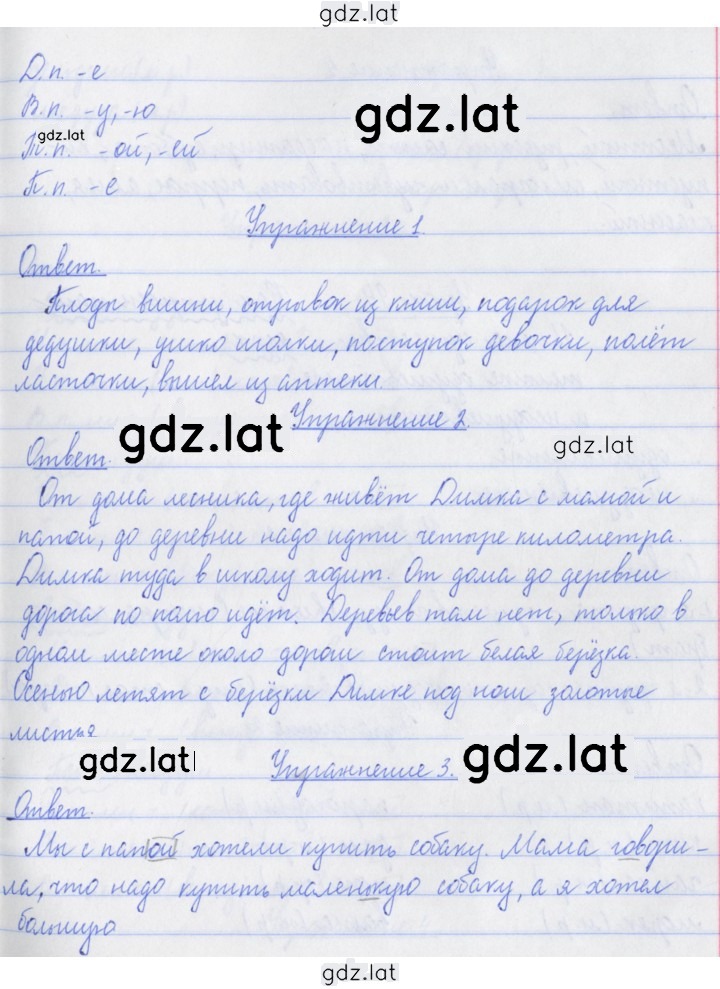 gdz.lat
Д.п. -е
В.п. -у, -ю
gdz.lat
gdz.lat
Т.п. -ой, -ей
П.п. -е
Упражнение 1.
Ответ.
Плоды вишни, отрывок из книги, подарок для
дедушки, ушко иголки, поступок девочки, полёт
ласточки, вышел из аптеки.
gdz.lat
Упражнение 2.
gdz.lat
Ответ.
От дома лесника, где живёт Димка с мамой и
папой, до деревни надо идти четыре километра.
Димка туда в школу ходит. От дома до деревни
дорога по полю идёт. Деревьев там нет, только в
одном месте около дороги стоит белая берёзка.
Осенью летят с берёзки Димке под ноги золотые
листья
gdz.lat
Упражнение 3.
gdz.lat
Ответ.
Мы с папой хотели купить собаку. Мама говори-
ла, что надо купить маленькую собаку, а я хотел
большую
gdz.lat